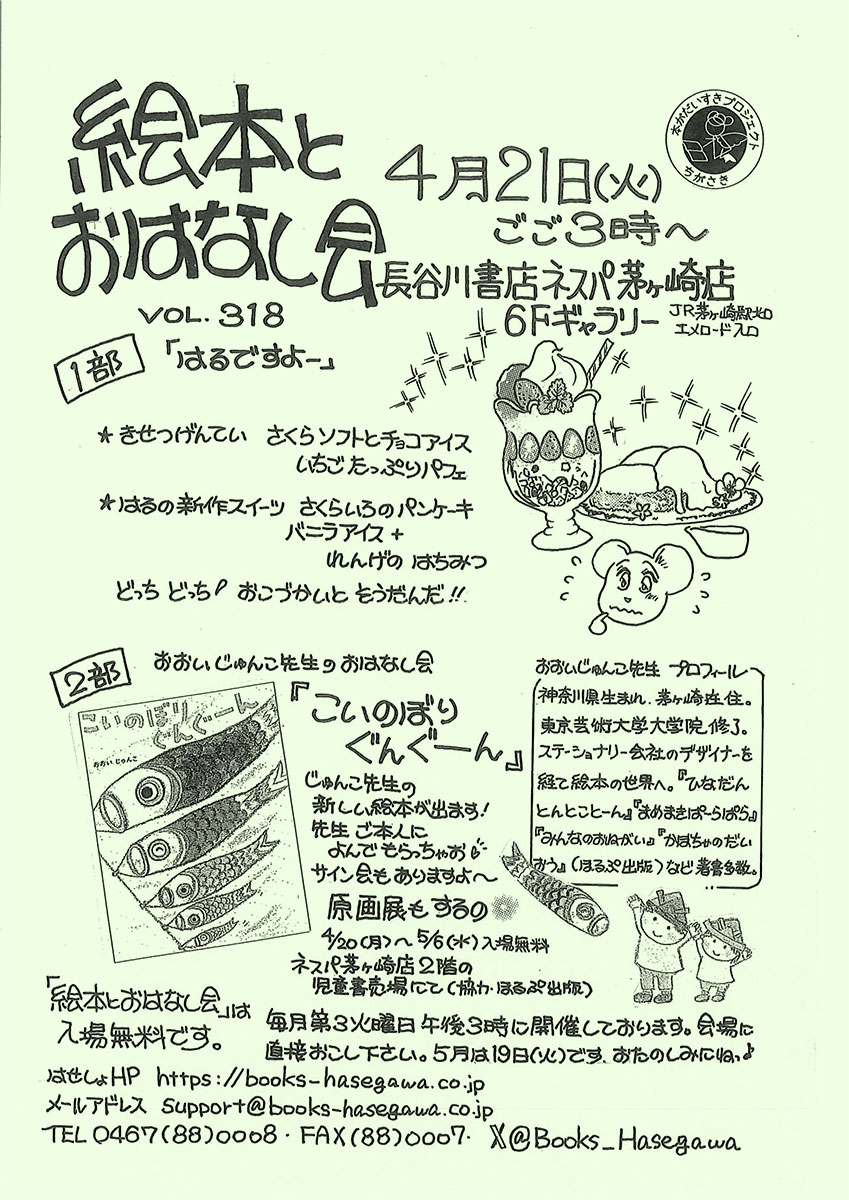 絵本と
おはなし会
VOL. 318
4月21日(火)
ごご3時～
長谷川書店ネスパ茅ヶ崎店
6Fギャラリー
JR茅ヶ崎駅北口
エメロード入口
本がだいすきプロジェクト
ちがさき
1部
「はるですよー」
★きせつげんてい さくらソフトとチョコアイス
いちごたっぷりパフェ
★はるの新作スイーツ さくらいろのパンケーキ
バニラアイス+
れんげの はちみつ
どっち どっち! おこづかいと そうだんだ!!
2部
おおいじゅんこ先生のおはなし会
こいのぼり
ぐんぐーん
おおいじゅんこ
『こいのぼり
ぐんぐーん』
じゅんこ先生の
新しい絵本が出ます!
先生ご本人に
よんでもらっちゃお!
サイン会もありますよ～
原画展もするの
4/20(月)～5/6(水)入場無料
ネスパ茅ヶ崎店2階の
児童書売場にて(協力・ほるぷ出版)
おおいじゅんこ先生 プロフィール
神奈川県生まれ、茅ヶ崎在住。
東京芸術大学大学院修了。
ステーショナリー会社のデザイナーを
経て絵本の世界へ。『ひなだん
とんとことーん』『まめまきぱーらぱら』
『みんなのおねがい』『かぼちゃのだい
おう』(ほるぷ出版)など著書多数。
「絵本とおはなし会」は
入場無料です。
毎月第3火曜日午後3時に開催しております。会場に
直接おこし下さい。5月は19日(火)です。おたのしみにねっ♪
はせしょHP https://books-hasegawa.co.jp
メールアドレス support@books-hasegawa.co.jp
TEL 0467(88)0008・FAX(88)0007・X@Books_Hasegawa